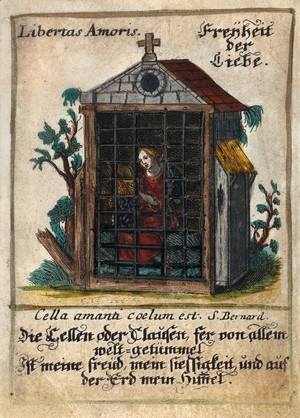 Libertas Amoris.
Freÿheit
der
Liebe.
Cella amanti coelum est. S. Bernard.
Die Cellen oder Clausen, fer von allem
welt-getümmel
Ist meine freud, mein siessigkeit, und auf
der Erd mein Himel.